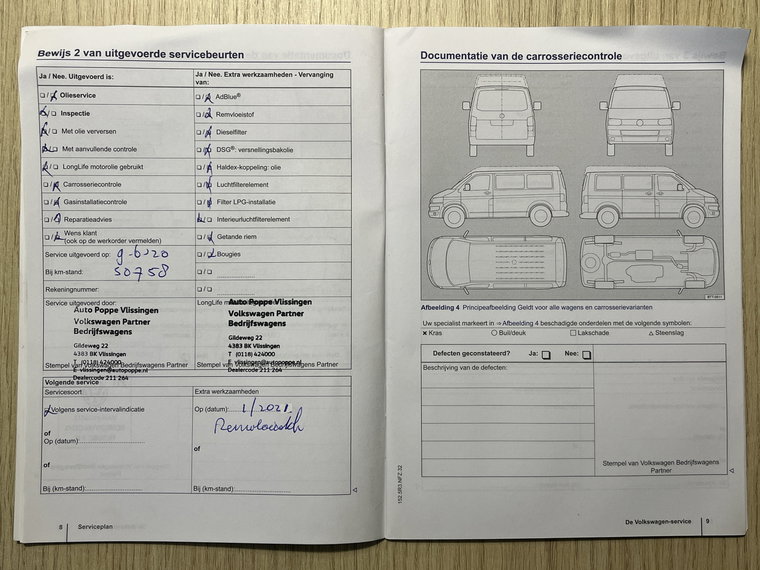 Bewijs 2 van uitgevoerde servicebeurten
Ja / Nee. Uitgevoerd is:
Ja / Nee. Extra werkzaamheden - Vervanging van:
Olieservice
AdBlue®
Inspectie
Remvloeistof
Met olie verversen
Dieselfilter
Met aanvullende controle
DSG®: versnellingsbakolie
LongLife motorolie gebruikt
Haldex-koppeling: olie
Carrosseriecontrole
Luchtfilterelement
Gasinstallatiecontrole
Filter LPG-installatie
Reparatieadvies
Interieurluchtfilterelement
Wens klant
(ook op de werkorder vermelden)
Getande riem
Service uitgevoerd op: 9-6-20
Bougies
Bij km-stand: 50758
Rekeningnummer:
Service uitgevoerd door:
LongLife
Auto Poppe Vlissingen
Volkswagen Partner
Bedrijfswagens
Gildeweg 22
4383 BK Vlissingen
T (0118) 424000
E vlissingen@autopoppe.nl
Dealercode 211 264
Stempel van Volkswagen Bedrijfswagens Partner
Auto Poppe Vlissingen
Volkswagen Partner
Bedrijfswagens
Gildeweg 22
4383 BK Vlissingen
T (0118) 424000
E vlissingen@autopoppe.nl
Dealercode 211 264
Stempel van Volkswagen Bedrijfswagens Partner
Volgende service
Servicesoort
Extra werkzaamheden
Volgens service-intervalindicatie
Op (datum): 1/2021.
Remvloeistof
of
Op (datum):
of
of
Bij (km-stand):
Bij (km-stand):
8 Serviceplan
Documentatie van de carrosseriecontrole
B7T-0611
Afbeelding 4 Principeafbeelding Geldt voor alle wagens en carrosserievarianten
Uw specialist markeert in ⇒ Afbeelding 4 beschadigde onderdelen met de volgende symbolen:
× Kras
○ Buil/deuk
□ Lakschade
△ Steenslag
Defecten geconstateerd? Ja: Nee:
Beschrijving van de defecten:
Stempel van Volkswagen Bedrijfswagens
Partner
152.5R3.NFZ.32
De Volkswagen-service 9